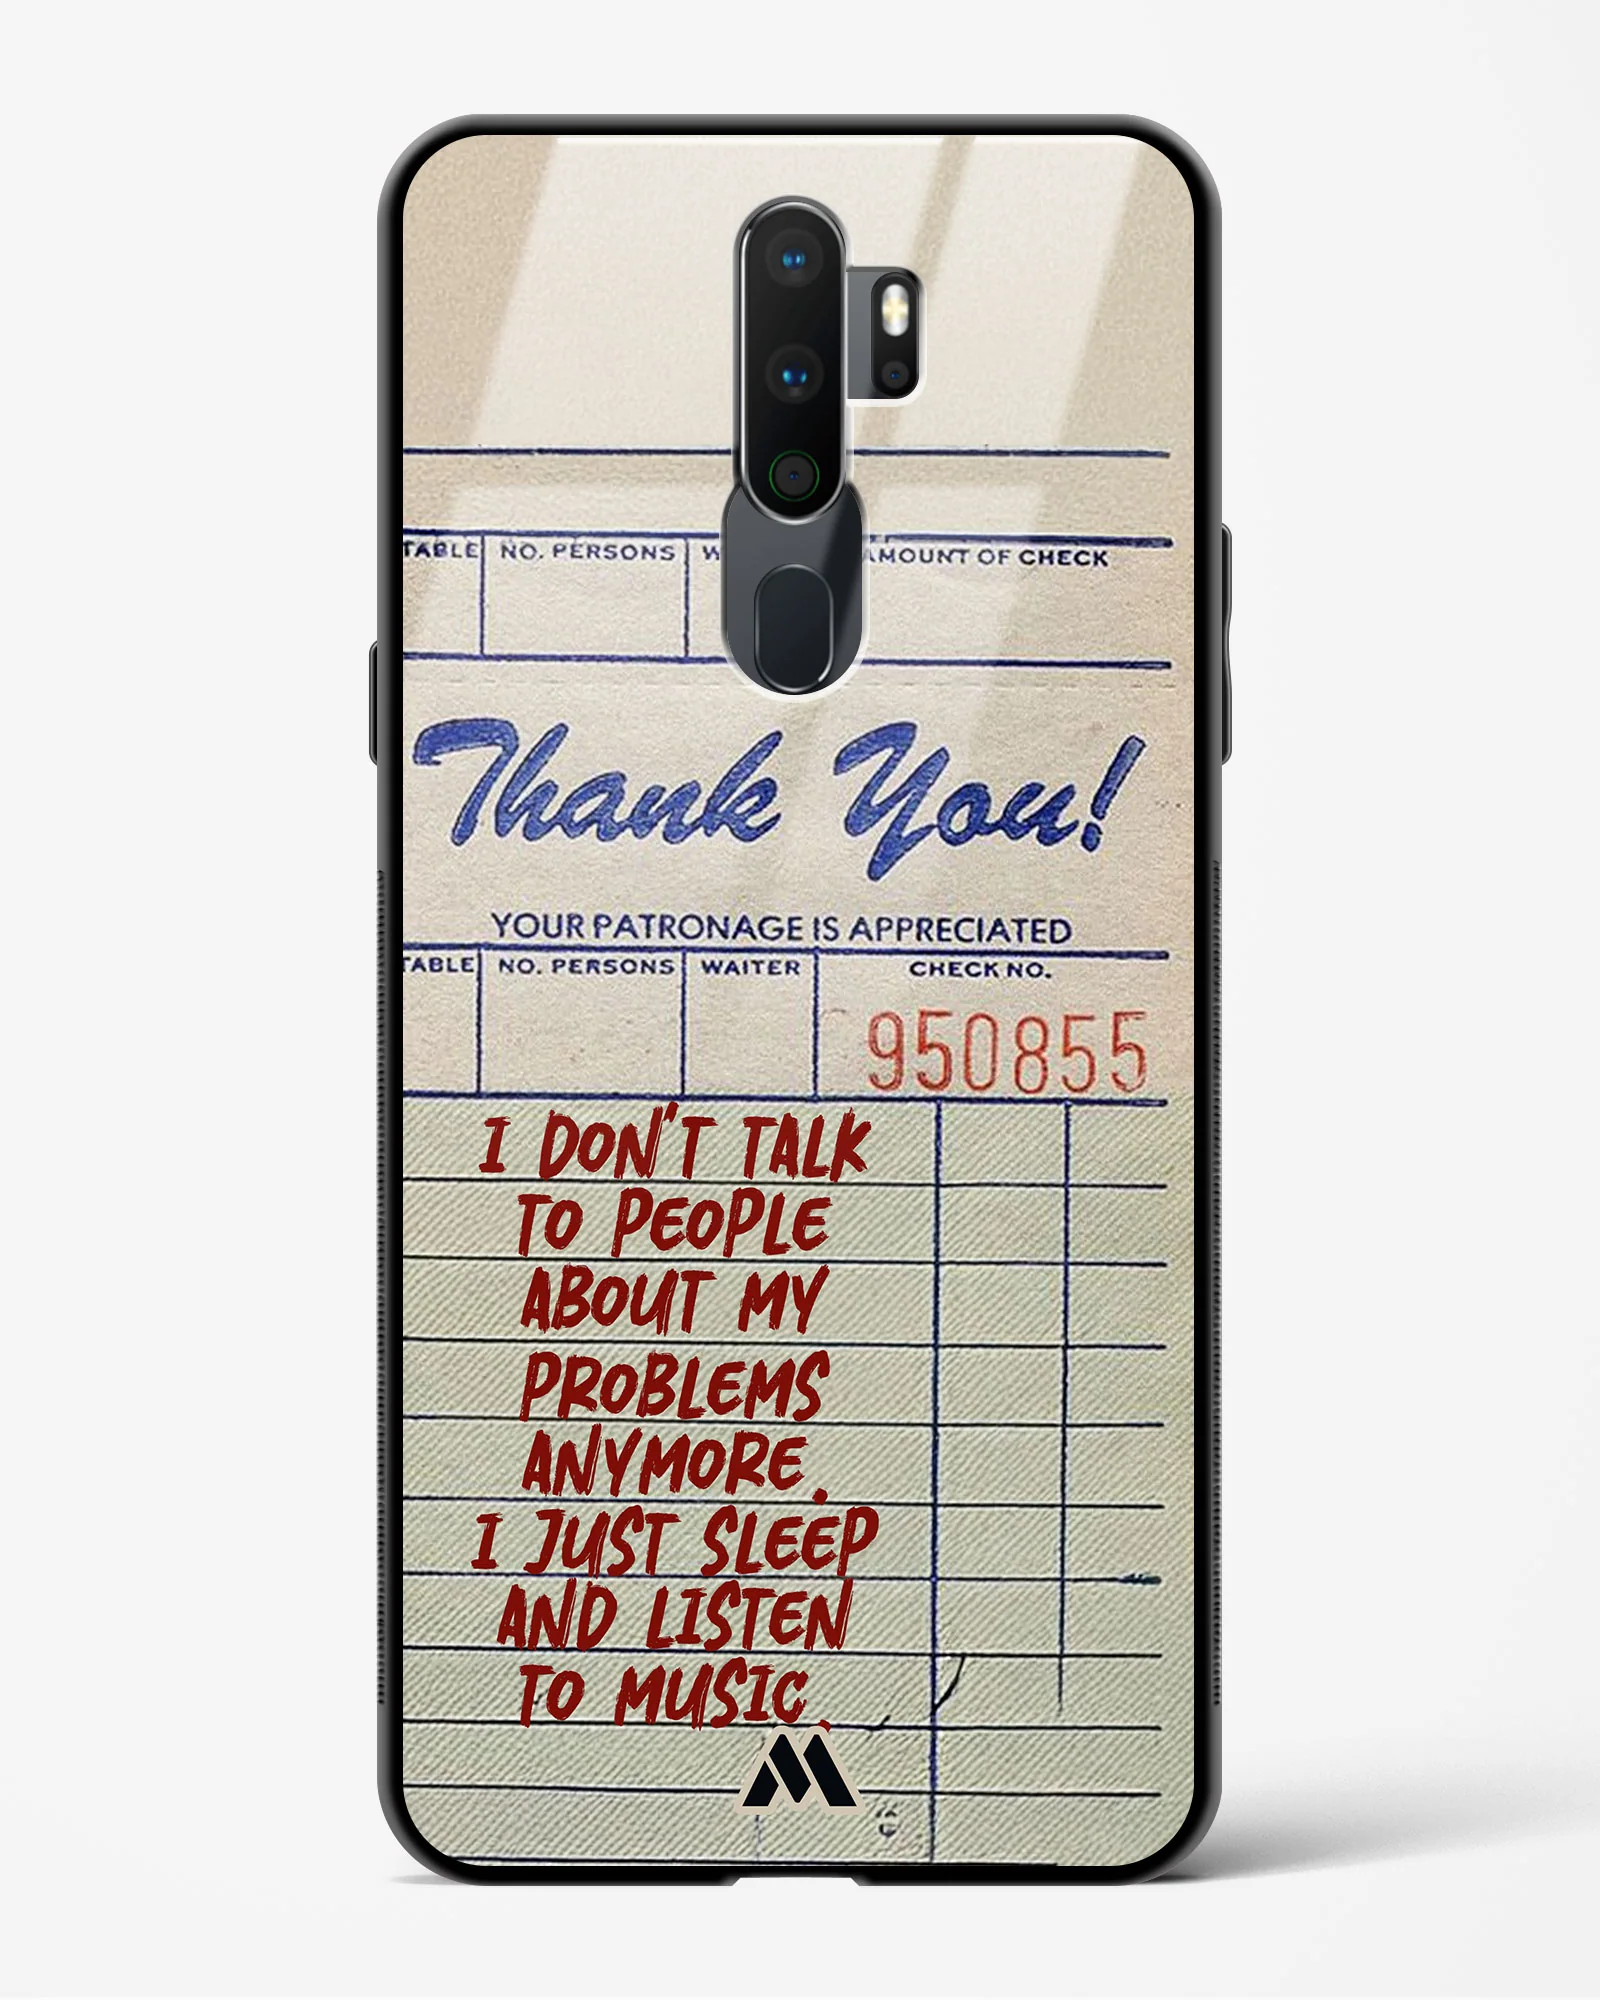 TABLE NO. PERSONS W AMOUNT OF CHECK
Thank You!
YOUR PATRONAGE IS APPRECIATED
TABLE NO. PERSONS WAITER CHECK NO.
950855
I DON'T TALK
TO PEOPLE
ABOUT MY
PROBLEMS
ANYMORE.
I JUST SLEEP
AND LISTEN
TO MUSIC.